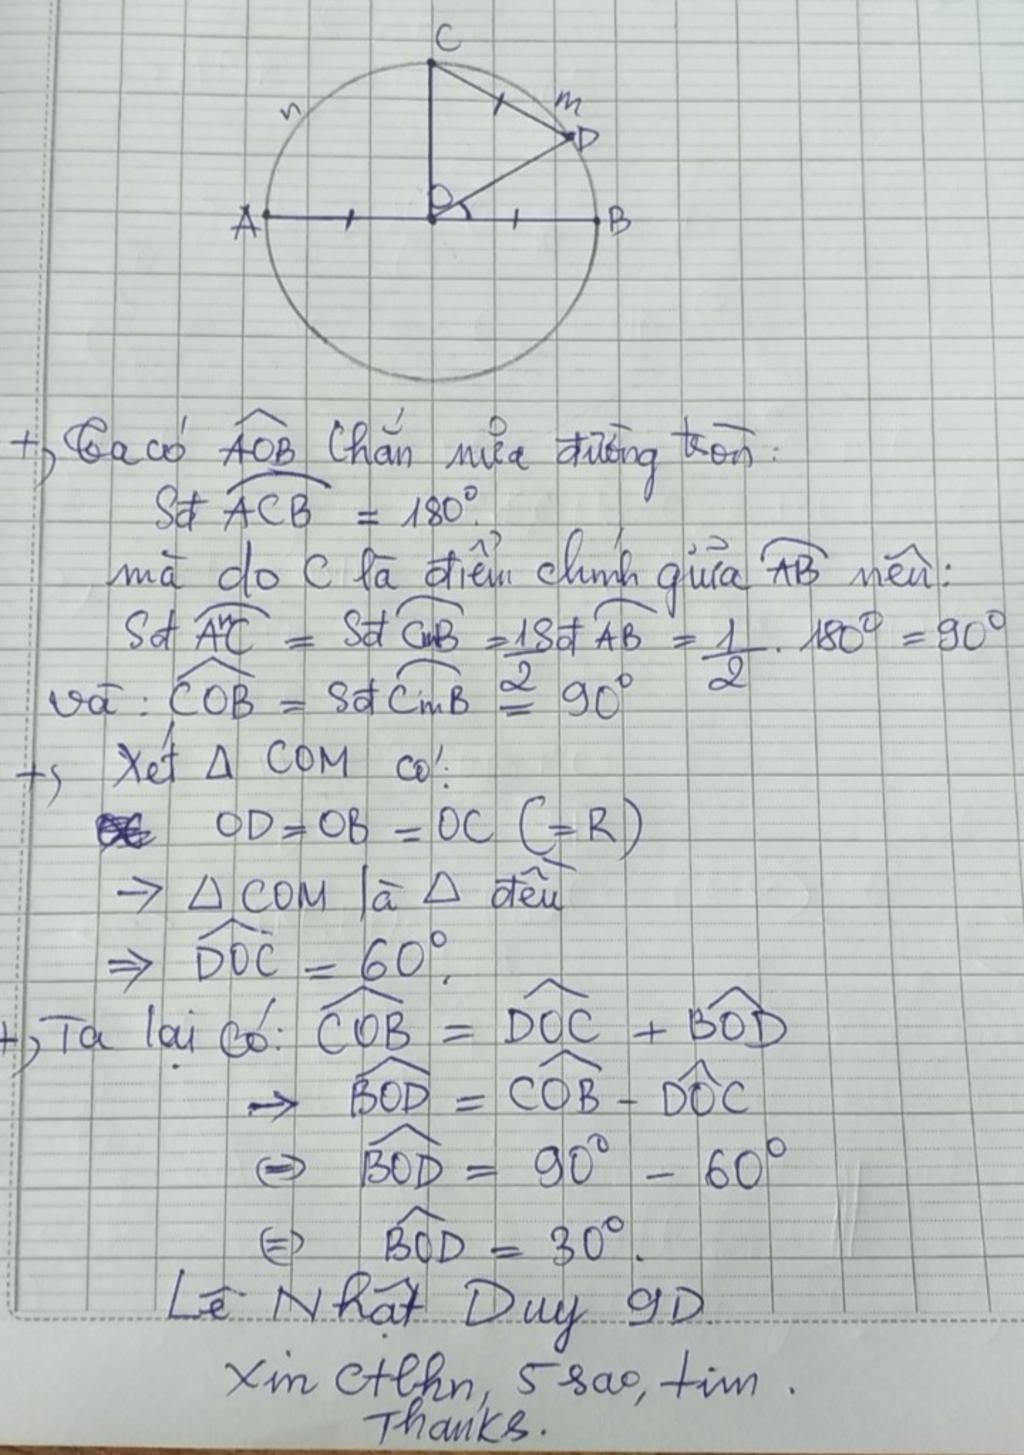 C
n
m
D
O
A
B
+, Ta có AOB chắn nửa đường tròn:
Sđ ACB = 180°.
mà do C là điểm chính giữa AB nên:
Sđ AnC = Sđ CmB = 1/2 Sđ AB = 1/2 . 180° = 90°
và : COB = Sđ CmB = 90°
+, Xét Δ COM có:
OD = OB = OC (= R)
→ Δ COM là Δ đều
⇒ DOC = 60°.
+, Ta lại có: COB = DOC + BOD
→ BOD = COB - DOC
⇔ BOD = 90° - 60°
⇔ BOD = 30°.
Lê Nhật Duy 9D.
Xin ctlhn, 5 sao, tim.
Thanks.